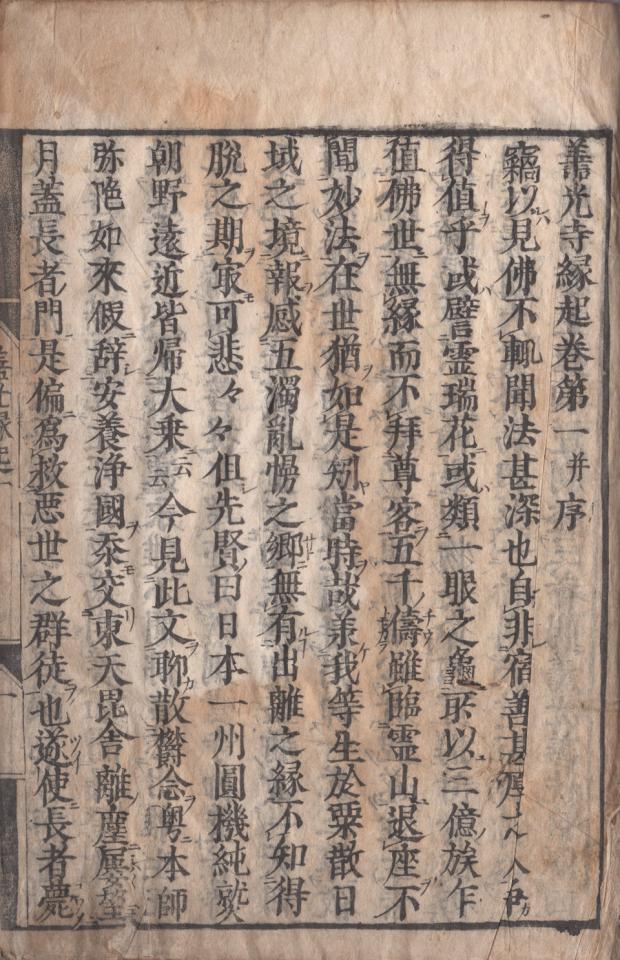 善光寺縁起巻第一并序
竊以見佛不輒聞法甚深也自非宿善甚厚之人尹
得値乎或譬霊瑞花或類一眼之龜所以三億族乍
値佛世無縁而不拜尊容五千儔雖臨霊山退座不
聞妙法在世猶如是矧當時哉羕我等生於粟散日
域之境報感五濁亂慢之郷無有出離之縁不知得
脱之期㝡可悲々々但先賢曰日本一州圓機純熟
朝野遠近皆帰大乗云云今見此文聊散欝念粤本師
弥陁如來假辞安養浄國忝交東天毘舎離塵屢
月蓋長者門是偏為救悪世之群徒也遂使長者薨